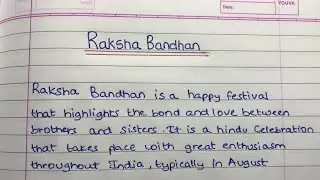 YOUVA
Date:
Raksha Bandhan
Raksha Bandhan is a happy festival
that highlights the bond and love between
brothers and sisters. It is a hindu Celebration
that takes place with great enthusiasm
throughout India, typically In August